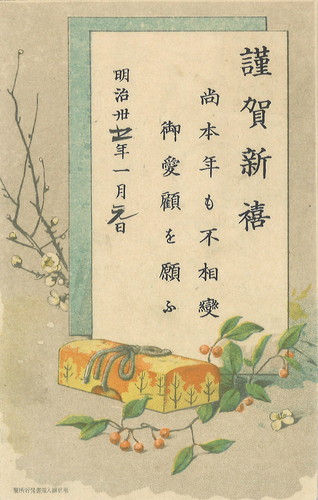 謹賀新禧
尚本年も不相變
御愛顧を願ふ
明治卅七年一月元日